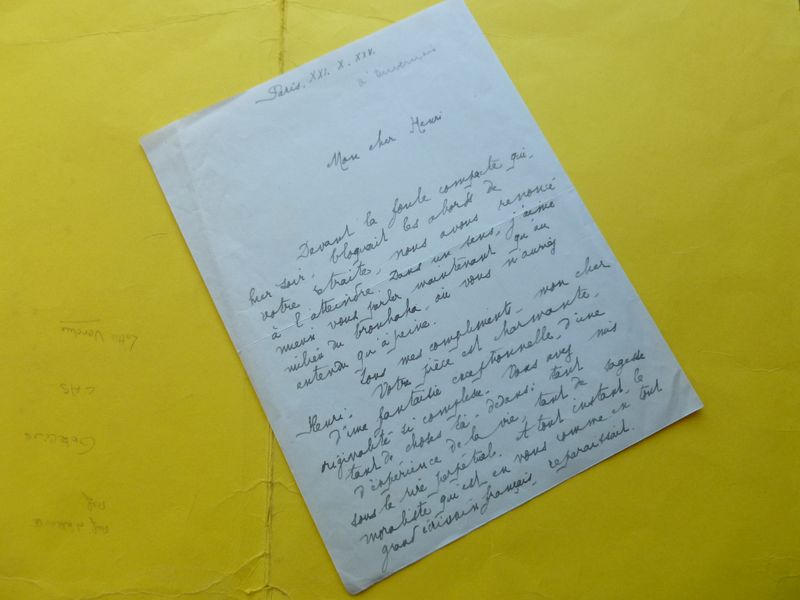 Paris. XXI. X. XXV.
à Duvernois
Mon cher Henri
Devant la foule compacte qui,
hier soir, bloquait les abords de
votre retraite, nous avons renoncé
à l'atteindre. Dans un sens, j'aime
mieux vous parler maintenant qu'au
milieu du brouhaha, où vous n'auriez
entendu qu'à peine.
Tous mes compliments, mon cher
Henri. Votre pièce est charmante,
d'une fantaisie exceptionnelle, d'une
originalité si complexe. Vous avez mis
tant de choses là-dedans: tant
d'expérience de la vie, tant de sagesse
sous le rire perpétuel. A tout instant, le
moraliste qui est en vous comme en tout
grand écrivain français, reparaissait.
Lettre
LAS